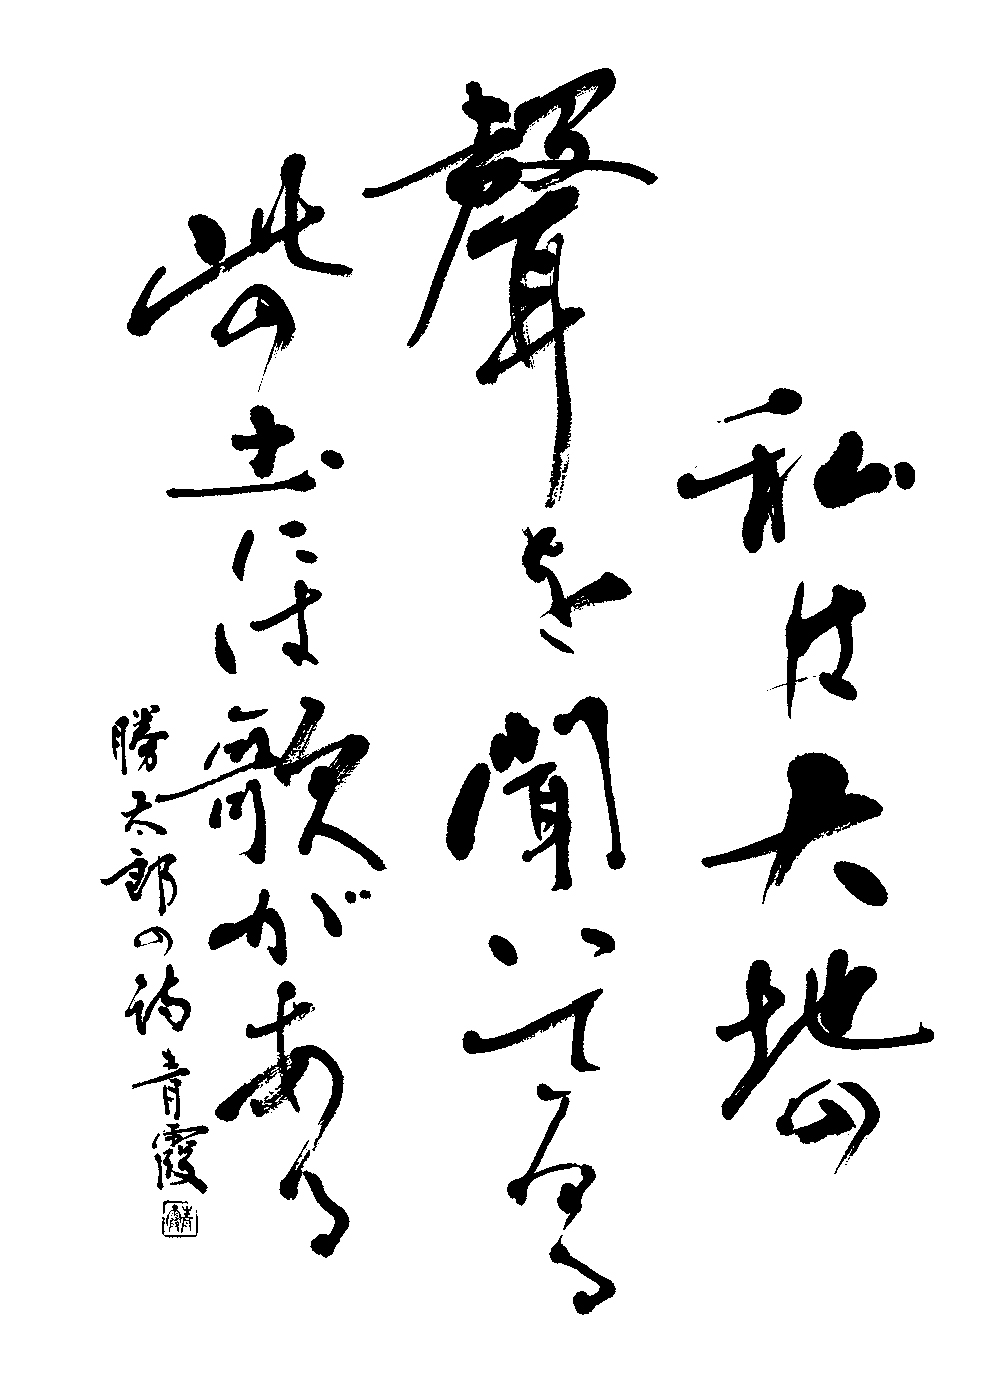 私は大地の
聲を聞いてゐる
此の土には歌がある
勝太郎の詩 青霞